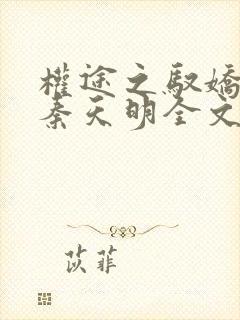 權途之馭嬌
秦天明全文
苡菲